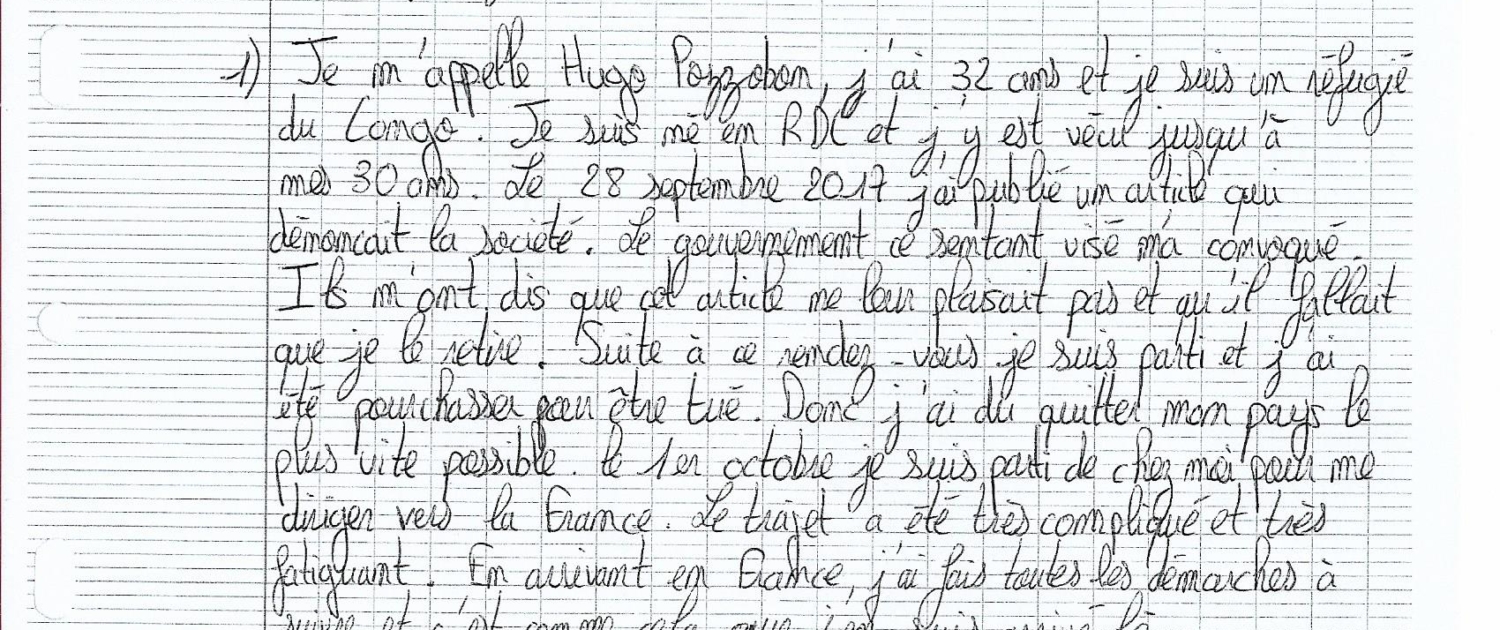 1) Je m'appelle Hugo Pozzobon, j'ai 32 ans et je suis un réfugié
du Congo. Je suis né en RDC et j'y est vécu jusqu'à
mes 30 ans. Le 28 septembre 2017 j'ai publié un article qui
dénoncait la société. Le gouvernement ce sentant visé m'a convoqué.
Ils m'ont dis que cet article ne leur plaisait pas et qu'il fallait
que je le retire. Suite à ce rendez-vous je suis parti et j'ai
été pourchasser pour être tué. Donc j'ai du quitter mon pays le
plus vite possible. le 1er octobre je suis parti de chez moi pour me
diriger vers la France. Le trajet a été très compliqué et très
fatiguant. En arrivant en France, j'ai fais toutes les démarches à
suivre et c'est comme cela que j'en suis arrivé là